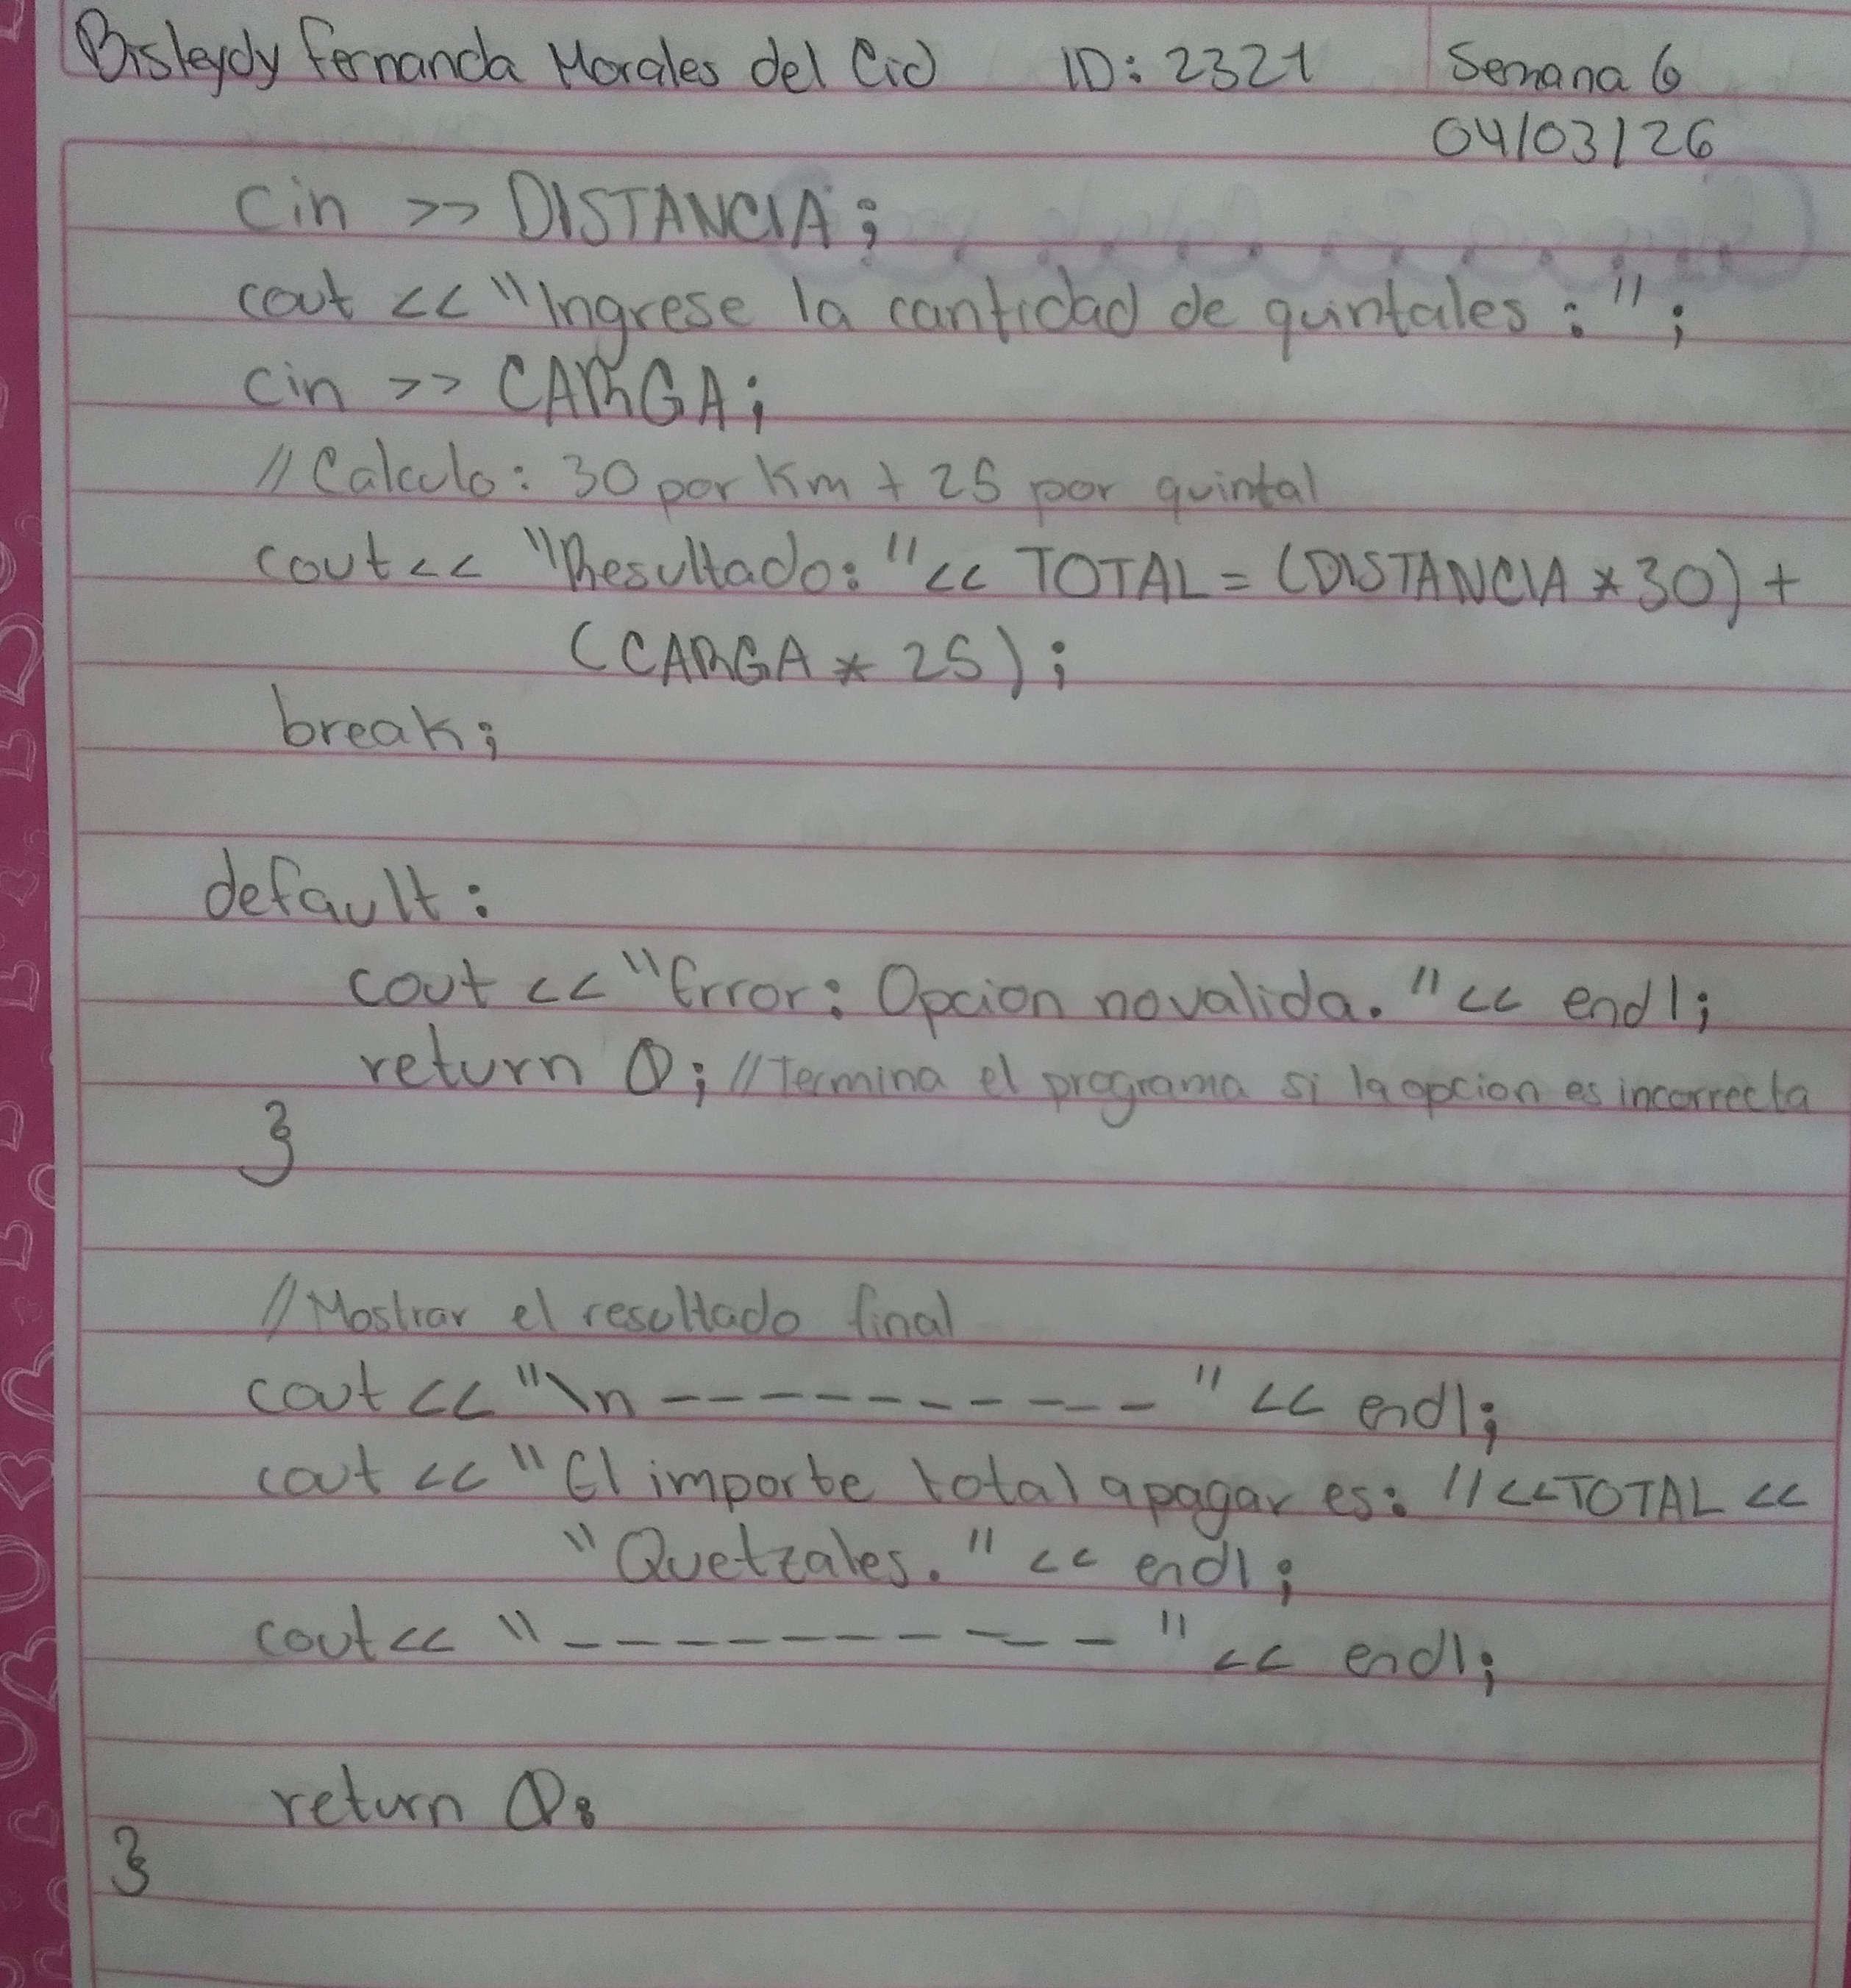 Bisleydy Fernanda Morales del Cid ID: 2321 Semana 6
04/03/26
cin >> DISTANCIA;
cout << "Ingrese la cantidad de quintales : " ;
cin >> CARGA;
// Calculo: 30 por Km + 25 por quintal
cout << "Resultado: " << TOTAL = (DISTANCIA * 30) +
(CARGA * 25) ;
break;
default :
cout << "Error: Opcion no valida. " << endl;
return 0; //Termina el programa si la opcion es incorrecta
}
//Mostrar el resultado final
cout << "\n ---------- " << endl;
cout << "El importe total a pagar es: " << TOTAL <<
"Quetzales. " << endl ;
cout << " ---------- " << endl;
return 0;
}